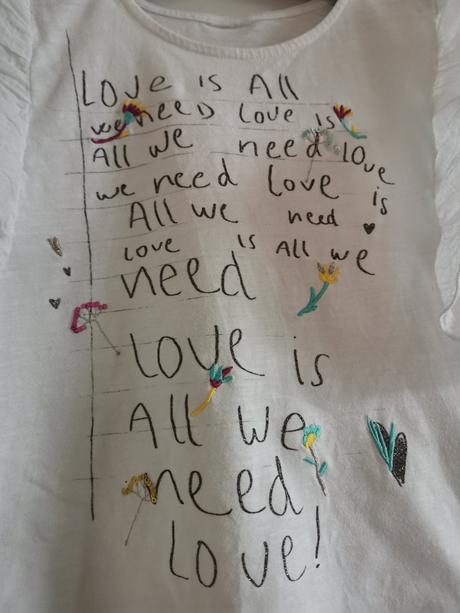 LOVE is All
we need love is
All we need love
we need love is
All we need
love is All we
need
love is
All we
need
love!